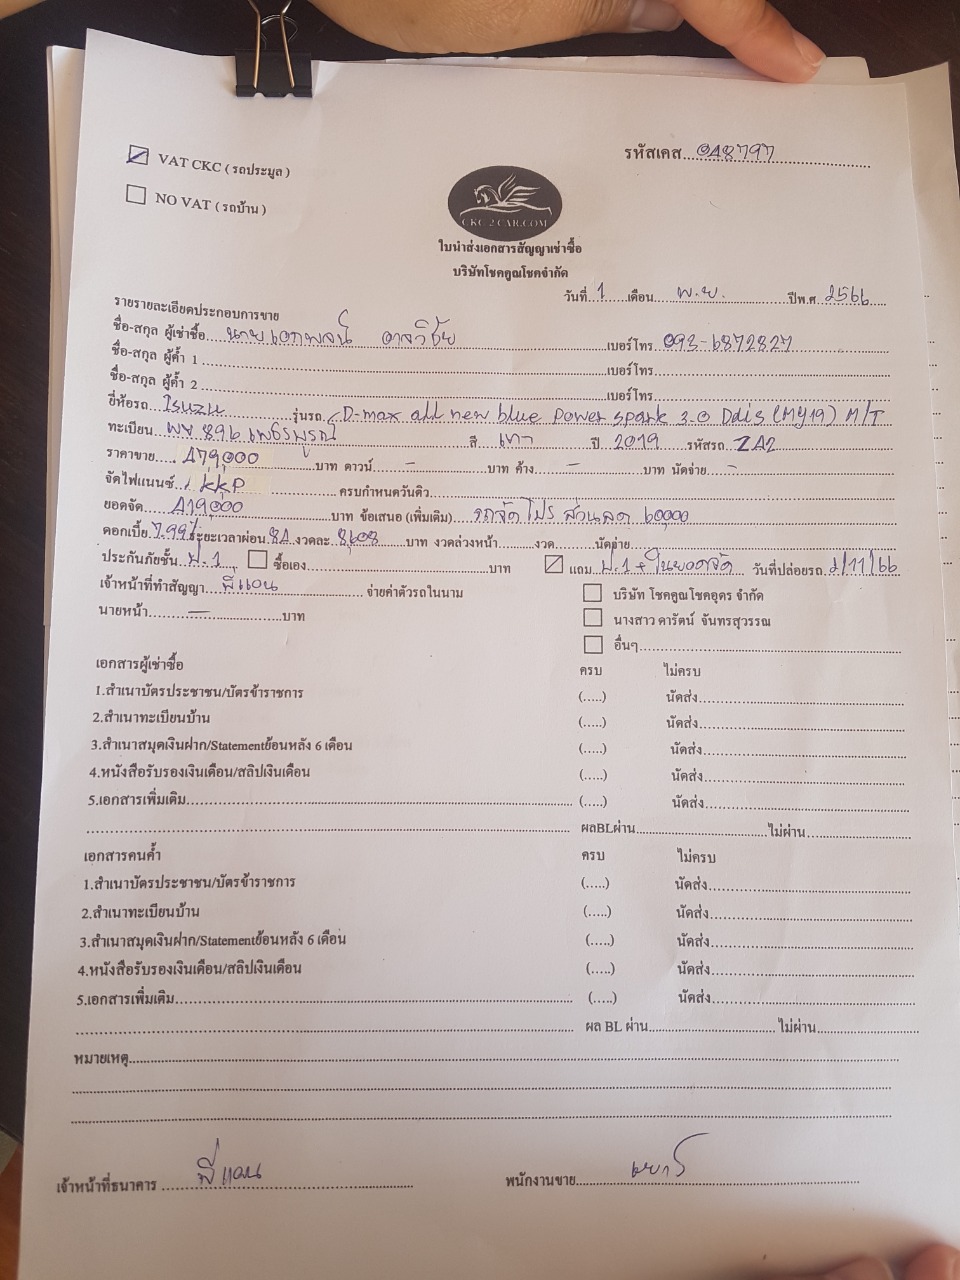 VAT CKC ( รถประมูล )
รหัสเคส...048797
NO VAT ( รถบ้าน )
CKC 2 CAR.COM
ใบนำส่งเอกสารสัญญาเช่าซื้อ
บริษัทโชคคูณโชคจำกัด
วันที่ 1 เดือน พ.ย. ปีพ.ศ 2566
รายรายละเอียดประกอบการขาย
ชื่อ-สกุล ผู้เช่าซื้อ นายเอกพจน์ อาจวิชัย เบอร์โทร 093-6872827
ชื่อ-สกุล ผู้ค้ำ 1 เบอร์โทร
ชื่อ-สกุล ผู้ค้ำ 2 เบอร์โทร
ยี่ห้อรถ Isuzu รุ่นรถ D-max all new blue Power spark 3.0 Ddis (MY19) M/T
ทะเบียน 896 เพชรบูรณ์ สี เทา ปี 2019 รหัสรถ ZA2
ราคาขาย 479,000 บาท ดาวน์ - บาท ค้าง - บาท นัดจ่าย -
จัดไฟแนนซ์ KKP ครบกำหนดวันคิว
ยอดจัด 419,000 บาท ข้อเสนอ (เพิ่มเติม) รถจัด โปร ส่วนลด 60,000
ดอกเบี้ย 7.99% ระยะเวลาผ่อน 84 งวดละ 8,608 บาท งวดล่วงหน้า งวด นัดจ่าย
ประกันภัยชั้น ป.1 ซื้อเอง บาท แถม ป.1 + ในยอดจัด วันที่ปล่อยรถ 2/11/66
เจ้าหน้าที่ทำสัญญา พี่แอน จ่ายค่าตัวรถในนาม บริษัท โชคคูณโชคอุดร จำกัด
นายหน้า - บาท นางสาว ดารัตน์ จันทรสุวรรณ
อื่นๆ
เอกสารผู้เช่าซื้อ ครบ ไม่ครบ
1.สำเนาบัตรประชาชน/บัตรข้าราชการ (.....) นัดส่ง
2.สำเนาทะเบียนบ้าน (.....) นัดส่ง
3.สำเนาสมุดเงินฝาก/Statementย้อนหลัง 6 เดือน (.....) นัดส่ง
4.หนังสือรับรองเงินเดือน/สลิปเงินเดือน (.....) นัดส่ง
5.เอกสารเพิ่มเติม (.....) นัดส่ง
ผลBLผ่าน ไม่ผ่าน
เอกสารคนค้ำ ครบ ไม่ครบ
1.สำเนาบัตรประชาชน/บัตรข้าราชการ (.....) นัดส่ง
2.สำเนาทะเบียนบ้าน (.....) นัดส่ง
3.สำเนาสมุดเงินฝาก/Statementย้อนหลัง 6 เดือน (.....) นัดส่ง
4.หนังสือรับรองเงินเดือน/สลิปเงินเดือน (.....) นัดส่ง
5.เอกสารเพิ่มเติม (.....) นัดส่ง
ผล BL ผ่าน ไม่ผ่าน
หมายเหตุ
เจ้าหน้าที่ธนาคาร พี่แอน พนักงานขาย